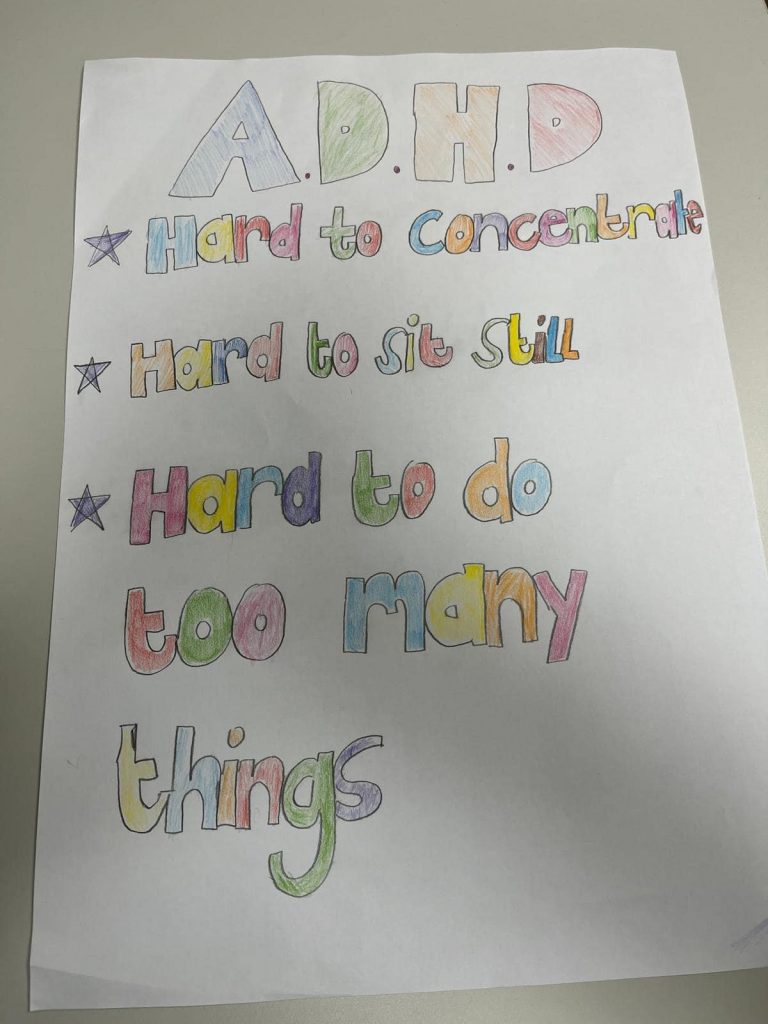 A.D.H.D
Hard to concentrate
Hard to sit still
Hard to do
too many
things